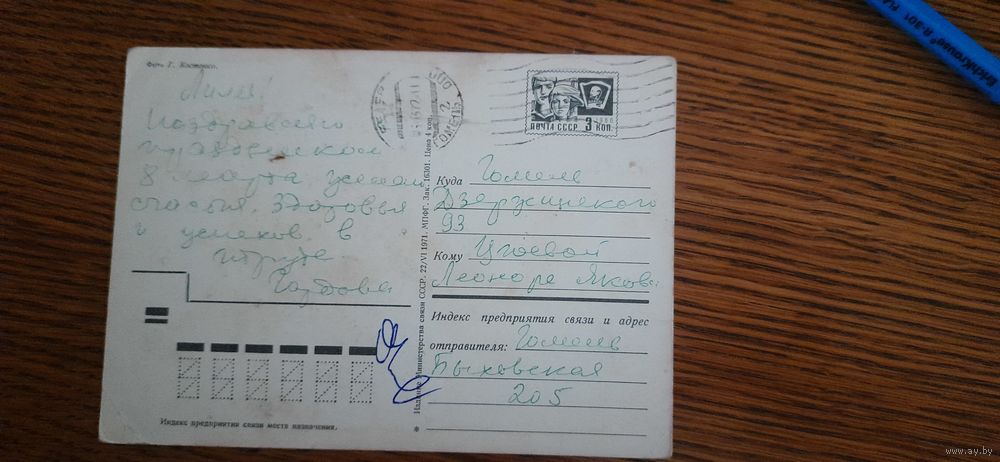 Фото Г. Костенко.
Лиля!
Поздравляю
8 марта желаю
счастья. Здоровья
и успехов в
труде
ГОМЕЛЬ 2
1966
ПОЧТА СССР 3 КОП.
Куда Гомель
Дзержинского
93
Кому
Леоноре Яковл
Индекс предприятия связи и адрес
отправителя: Гомель
Быховская
205
Издание Министерства связи СССР. 22/VI 1971. МПФГ. Зак. 16301. Цена 4 коп.
Индекс предприятия связи места назначения.
ErichKrause® R-301
www.ay.by